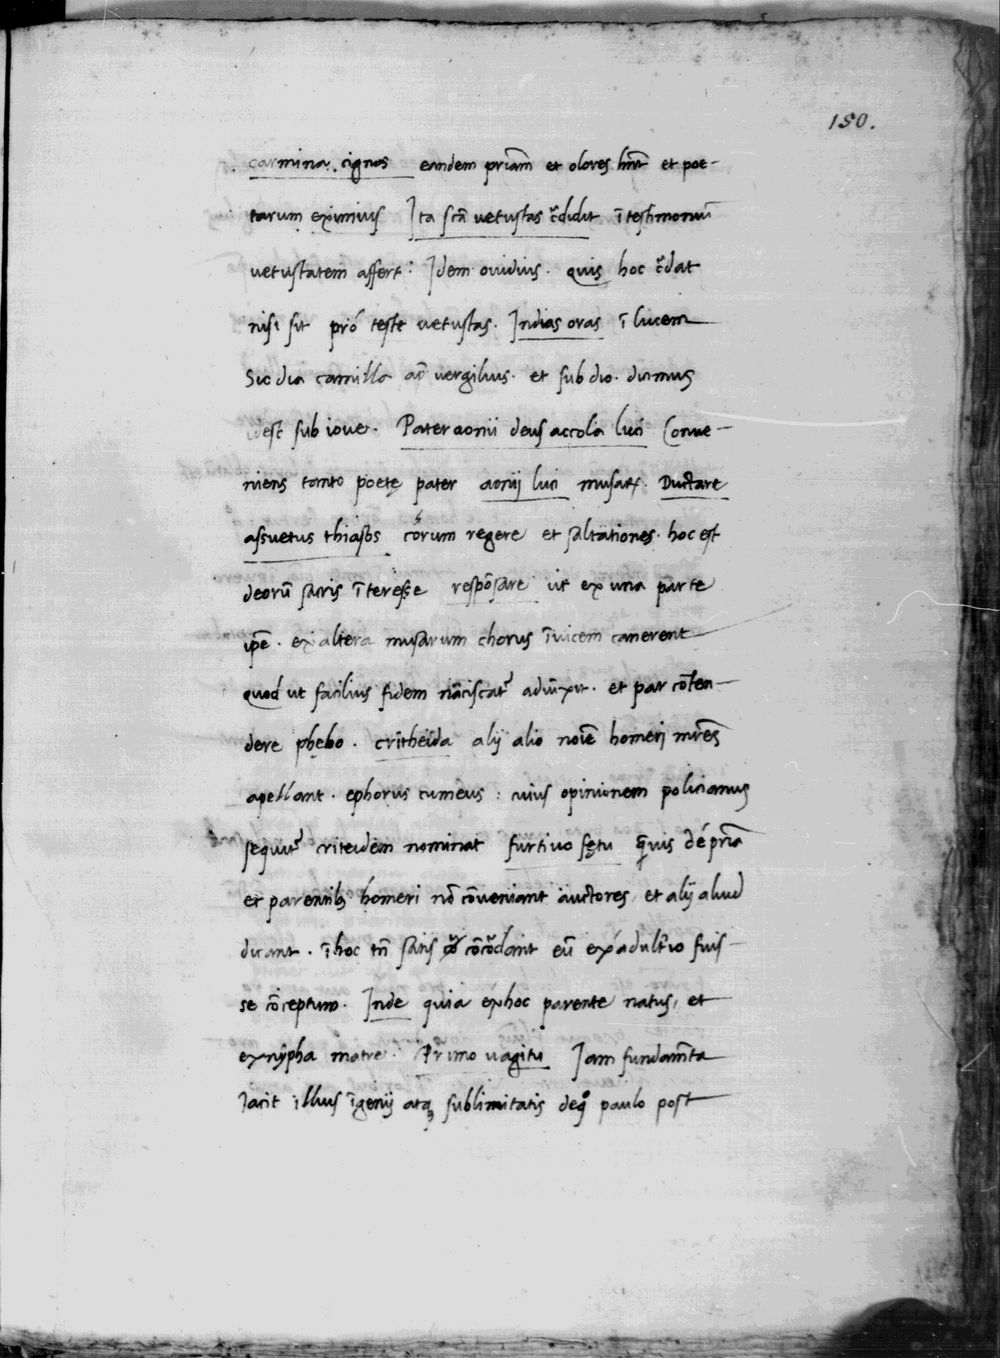 150.
carmina. cignos eandem priam̄ et olores hn̄t et poe-
tarum eximius Ita sc̄a vetustas c̄didit ī testimoniū
vetustatem affert: Idem ovidius. quis hoc c̄dat
nisi sit prō teste vetustas. Indias oras ī lucem
Sic dia camilla ap̄ vergilius. et sub dio. dicimus
idest sub iove. Pater aonii deus accola luci Conve-
niens tanto poetę pater aonij luci musaꝝ. Ductare
assuetus thiasos cōrum regere et saltationes. hoc est
deorū sacris īteresse respōsare ut ex una parte
ip̄e. ex altera musarum chorus īvicem canerent
quod ut facilius fidem nāciscat᷑ adiūxit. et par cōten-
dere phębo. crītheida alij alio noīe homeri mr̄es
apellant. ephorus cumeus: cuius opinionem policianus
sequit᷑ criteidem nominat furtivo fętu q̄vis de pr̄ia
et parentibꝫ homeri nō cōveniant auctores, et alij aliud
dicant. ī hoc tn̄ satis cōcōdant eū ex adult̄io fuis-
se cōceptum. Inde quia ex hoc parente natus, et
ex nȳpha matre. Primo vagitu Iam fundam̄ta
Iacit illius īgenij atqꝫ sublimitatis de qͦ paulo post